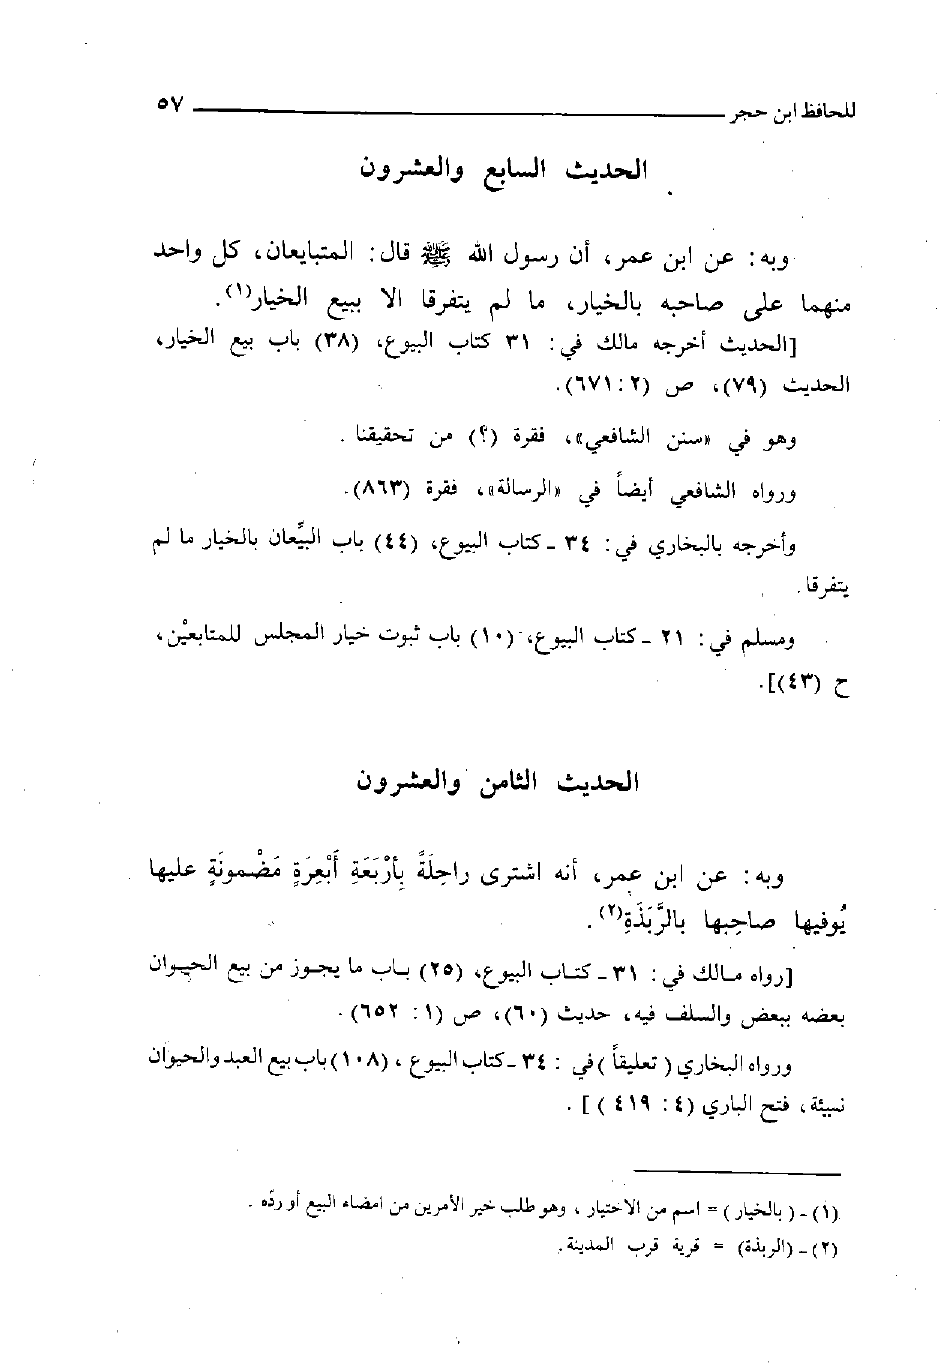 للحافظ ابن حجر ٥٧
الحديث السابع والعشرون
وبه: عن ابن عمر، أن رسول الله ﷺ قال: المتبايعان، كل واحد
منهما على صاحبه بالخيار، ما لم يتفرقا الا بيع الخيار(١).
[الحديث أخرجه مالك في: ٣١ كتاب البيوع، (٣٨) باب بيع الخيار،
الحديث (٧٩)، ص (٢: ٦٧١).
وهو في «سنن الشافعي»، فقرة (؟) من تحقيقنا.
ورواه الشافعي أيضاً في «الرسالة»، فقرة (٨٦٣).
وأخرجه بالبخاري في: ٣٤ ـ كتاب البيوع، (٤٤) باب البيِّعان بالخيار ما لم
يتفرقا.
ومسلم في: ٢١ ـ كتاب البيوع، (١٠) باب ثبوت خيار المجلس للمتابعيْن،
ح (٤٣)].
الحديث الثامن والعشرون
وبه: عن ابن عمر، أنه اشترى راحِلَةً بِأَرْبَعَةِ أَبْعِرَةٍ مَضْمونَةٍ عليها
يُوفيها صاحِبها بالرَّبَذَةِ(٢).
[رواه مالك في: ٣١ ـ كتاب البيوع، (٢٥) باب ما يجوز من بيع الحيوان
بعضه ببعض والسلف فيه، حديث (٦٠)، ص (١: ٦٥٢).
ورواه البخاري (تعليقاً) في: ٣٤ ـ كتاب البيوع، (١٠٨) باب بيع العبد والحيوان
نسيئة، فتح الباري (٤: ٤١٩)].
(١) ـ (بالخيار) = اسم من الاختيار، وهو طلب خير الأمرين من امضاء البيع أو ردّه.
(٢) ـ (الربذة) = قرية قرب المدينة.